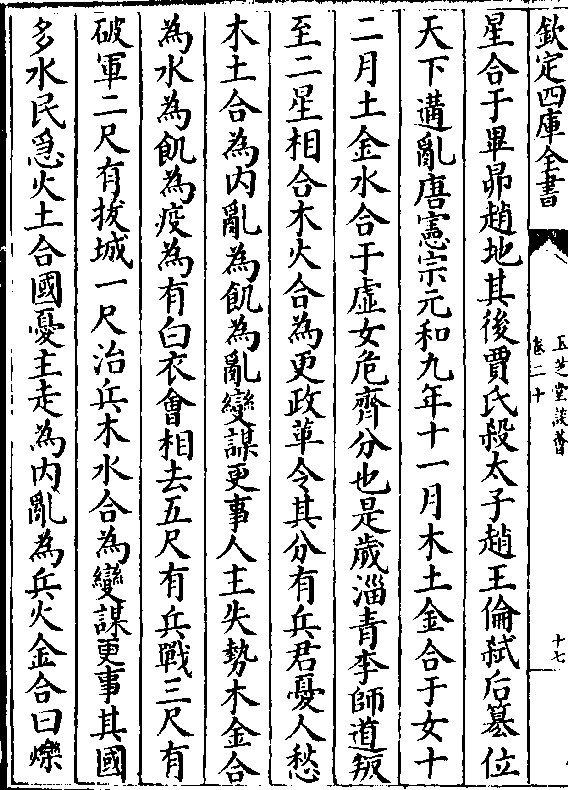 欽定四庫全書
玉芝堂談薈
卷二十
十七
星合于畢昴趙地其後賈氏殺太子趙王倫弑后篡位
天下遘亂唐憲宗元和九年十一月木土金合于女十
二月土金水合于虛女危齊分也是歲淄青李師道叛
至二星相合木火合為更政革令其分有兵君憂人愁
木土合為内亂為飢為亂變謀更事人主失勢木金合
為水為飢為疫為有白衣會相去五尺有兵戰三尺有
破軍二尺有拔城一尺治兵木水合為變謀更事其國
多水民急火土合國憂主走為内亂為兵火金合曰爍